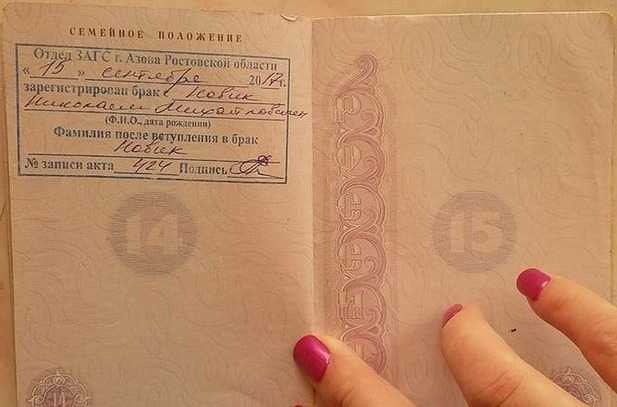 СЕМЕЙНОЕ ПОЛОЖЕНИЕ
Отдел ЗАГС г. Азова Ростовской области
« 15 » сентября 2017г.
зарегистрирован брак с Новик
Николаем Михайловичем
(Ф.И.О., дата рождения)
Фамилия после вступления в брак
Новик
№ записи акта 424 Подпись
14
15
14